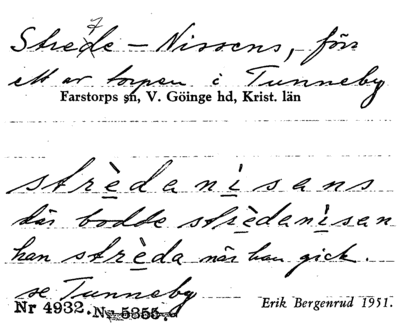 Strede-Nissens, förr
ett av torpen i Tunneby
Farstorps sn, V. Göinge hd, Krist. län
strèdanisans
där bodde strèdanisan
han strèda när han gick.
se Tunneby
Nr 4932. Nr 5355.
Erik Bergenrud 1951.